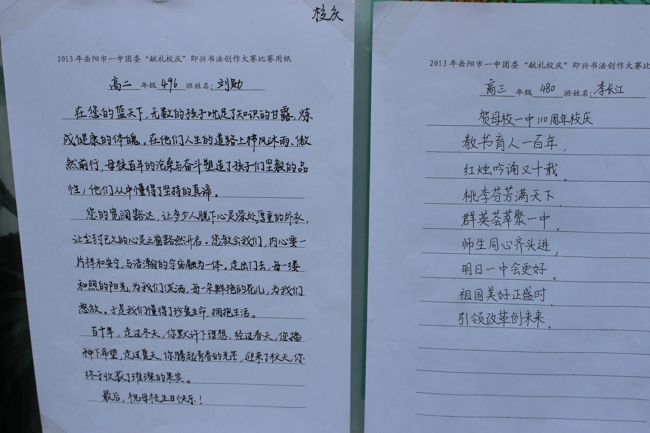 校庆
2013年岳阳市一中团委“献礼校庆”即兴书法创作大赛比赛用纸
高二 年级 496 班姓名: 刘勋
在您的蓝天下，无数的孩子吮足了知识的甘露，炼
成健康的体魄，在他们人生的道路上栉风沐雨、傲
然前行，母校百年的沧桑与奋斗塑造了孩子们坚毅的品
性，他们从中懂得了坚持的真谛。
您的宽阔豁达，让多少人脱下心灵深处厚重的外衣，
让尘封已久的心灵之窗豁然开启。您教会我们，内心要一
片祥和安宁，与浩瀚的宇宙融为一体。走出门去，每一缕
和煦的阳光，为我们洒满，每一朵鲜艳的花儿，为我们
怒放。于是我们懂得了珍爱生命，拥抱生活。
百十年，走过冬天，你默许下理想，经过春天，您播
种下希望，走过夏天，你腾起青春的光芒，迎来了秋天，你
终于收获了璀璨的果实。
最后，祝母校生日快乐！
2013年岳阳市一中团委“献礼校庆”即兴书法创作大赛比
高三 年级 480 班姓名: 李长江
贺母校一中110周年校庆
教书育人一百年，
红烛吟诵又十载。
桃李芬芳满天下，
群英荟萃聚一中，
师生同心齐头进，
明日一中会更好。
祖国美好正盛时，
引领改革创未来。